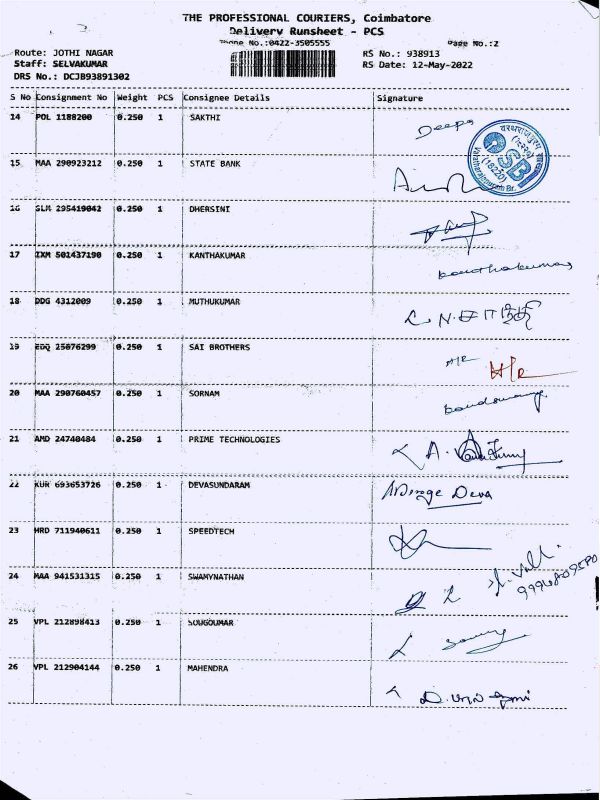 THE PROFESSIONAL COURIERS, Coimbatore
Delivery Runsheet - PCS
Phone No.:0422-3505555 Page No.:2
Route: JOTHI NAGAR RS No.: 938913
Staff: SELVAKUMAR RS Date: 12-May-2022
DRS No.: DCJB93891302
S No Consignment No Weight PCS Consignee Details Signature
14 POL 1188200 0.250 1 SAKTHI Deepa
15 MAA 290923212 0.250 1 STATE BANK
PSB
16 SLM 295419042 0.250 1 DHERSINI
17 IXM 501437190 0.250 1 KANTHAKUMAR Kanthakumar
18 DDG 4312009 0.250 1 MUTHUKUMAR
19 EDQ 25076299 0.250 1 SAI BROTHERS H/R H/R
20 MAA 290760457 0.250 1 SORNAM
21 AMD 24740484 0.250 1 PRIME TECHNOLOGIES
22 KUR 693653726 0.250 1 DEVASUNDARAM Deva
23 HRD 711940611 0.250 1 SPEEDTECH
24 MAA 941531315 0.250 1 SWAMYNATHAN
25 VPL 212898413 0.250 1 SOUGOUMAR
26 VPL 212904144 0.250 1 MAHENDRA